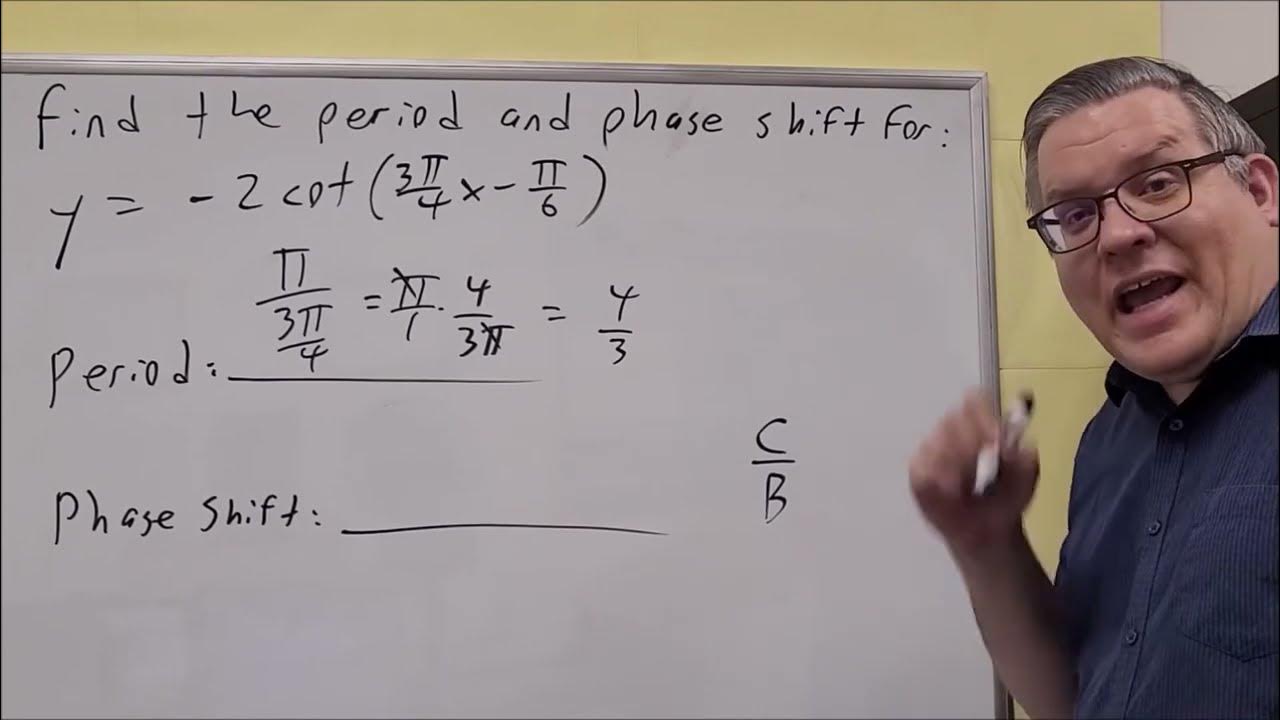 find the period and phase shift for:
y = -2 cot(3π/4 x - π/6)
Period: π/(3π/4) = π/1 · 4/3π = 4/3
C/B
Phase shift: